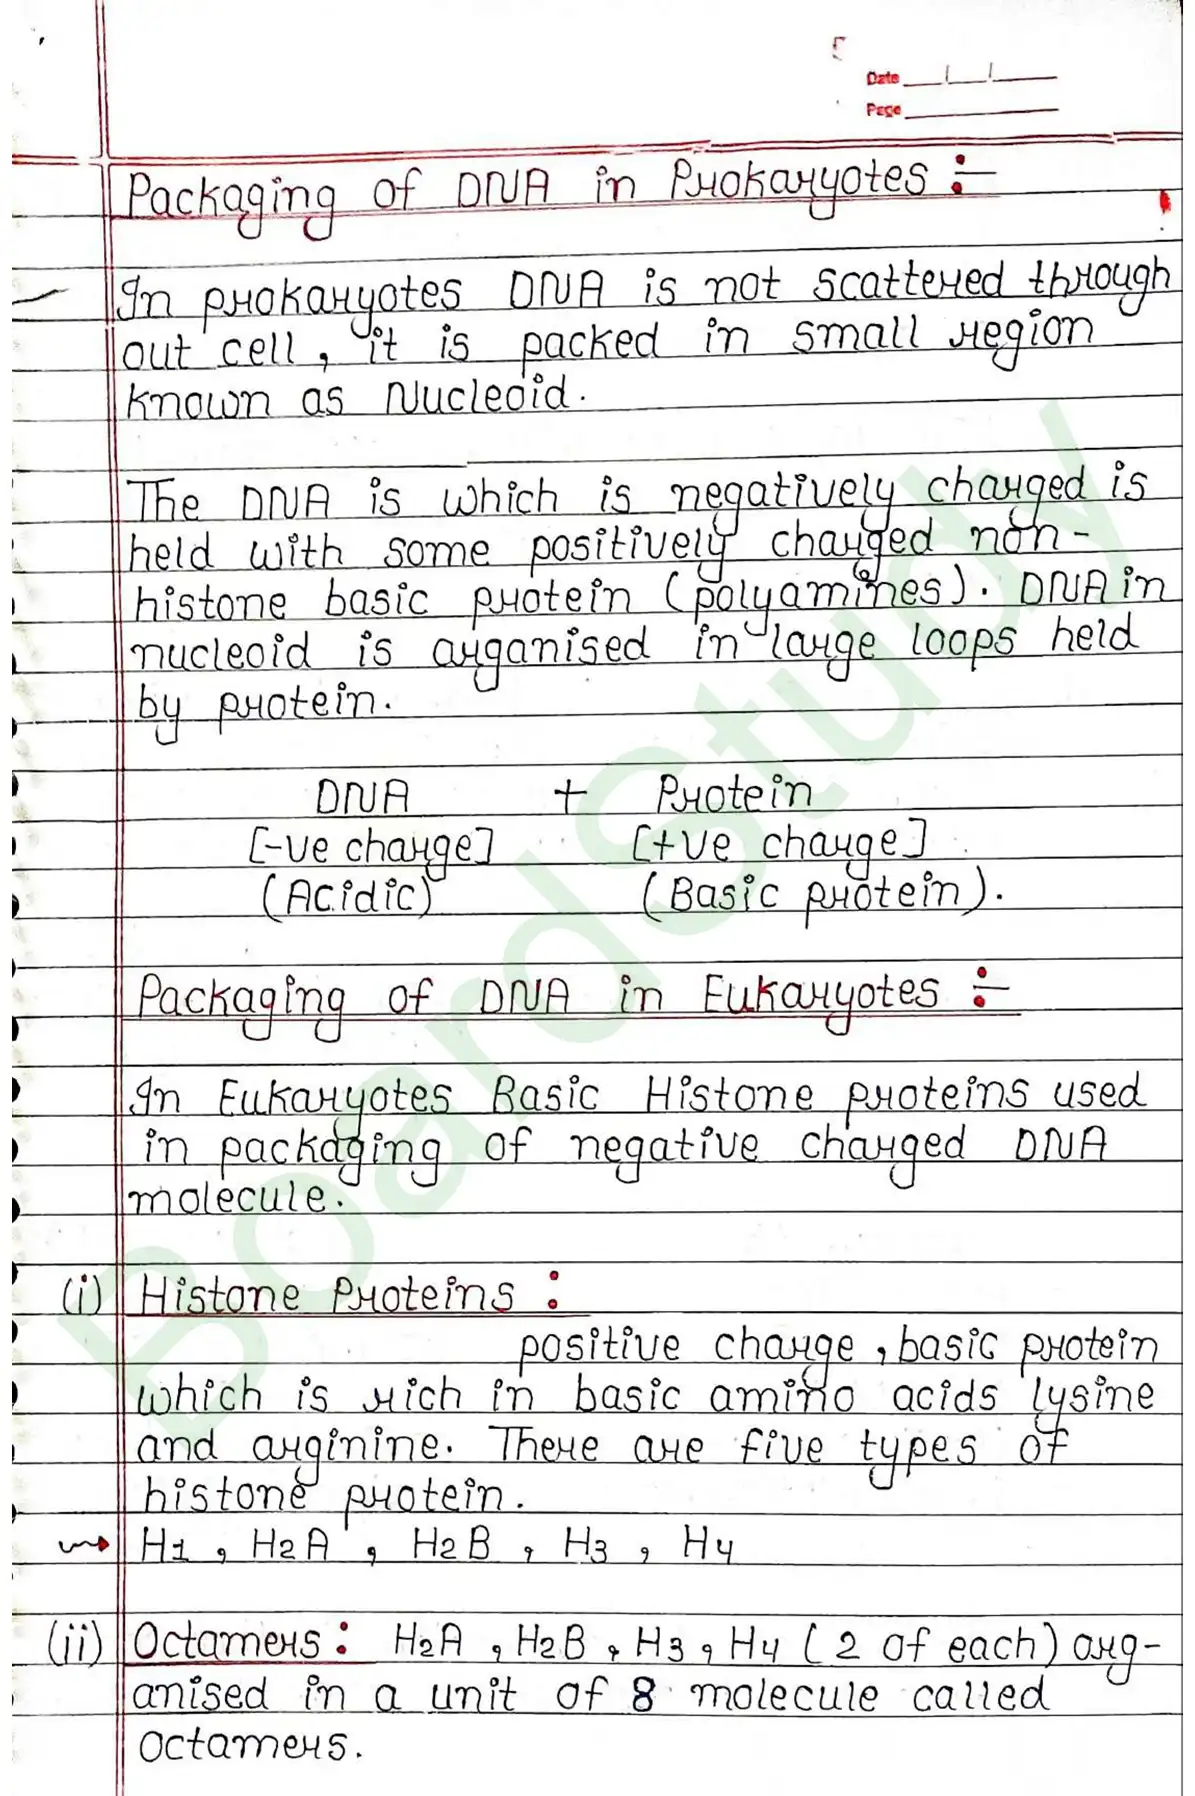 Date
Page
Packaging of DNA in Prokaryotes :-
In prokaryotes DNA is not scattered through
out cell, it is packed in small region
known as Nucleoid.
The DNA is which is negatively charged is
held with some positively charged non-
histone basic protein (polyamines). DNA in
nucleoid is arganised in large loops held
by protein.
DNA + Protein
[-ve charge] [+ve charge]
(Acidic) (Basic protein).
Packaging of DNA in Eukaryotes :-
In Eukaryotes Basic Histone proteins used
in packaging of negative charged DNA
molecule.
(i) Histone Proteins :
positive charge, basic protein
which is rich in basic amino acids lysine
and arginine. There are five types of
histone protein.
→ H1, H2A, H2B, H3, H4
(ii) Octamers : H2A, H2B, H3, H4 (2 of each) arg-
anised in a unit of 8 molecule called
octamers.
BoardStudy